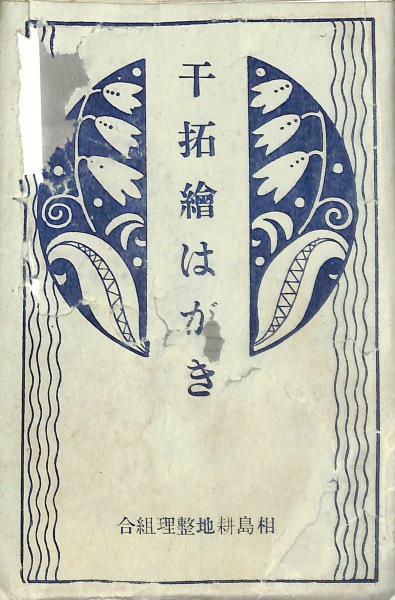 干拓繪はがき
相島耕地整理組合